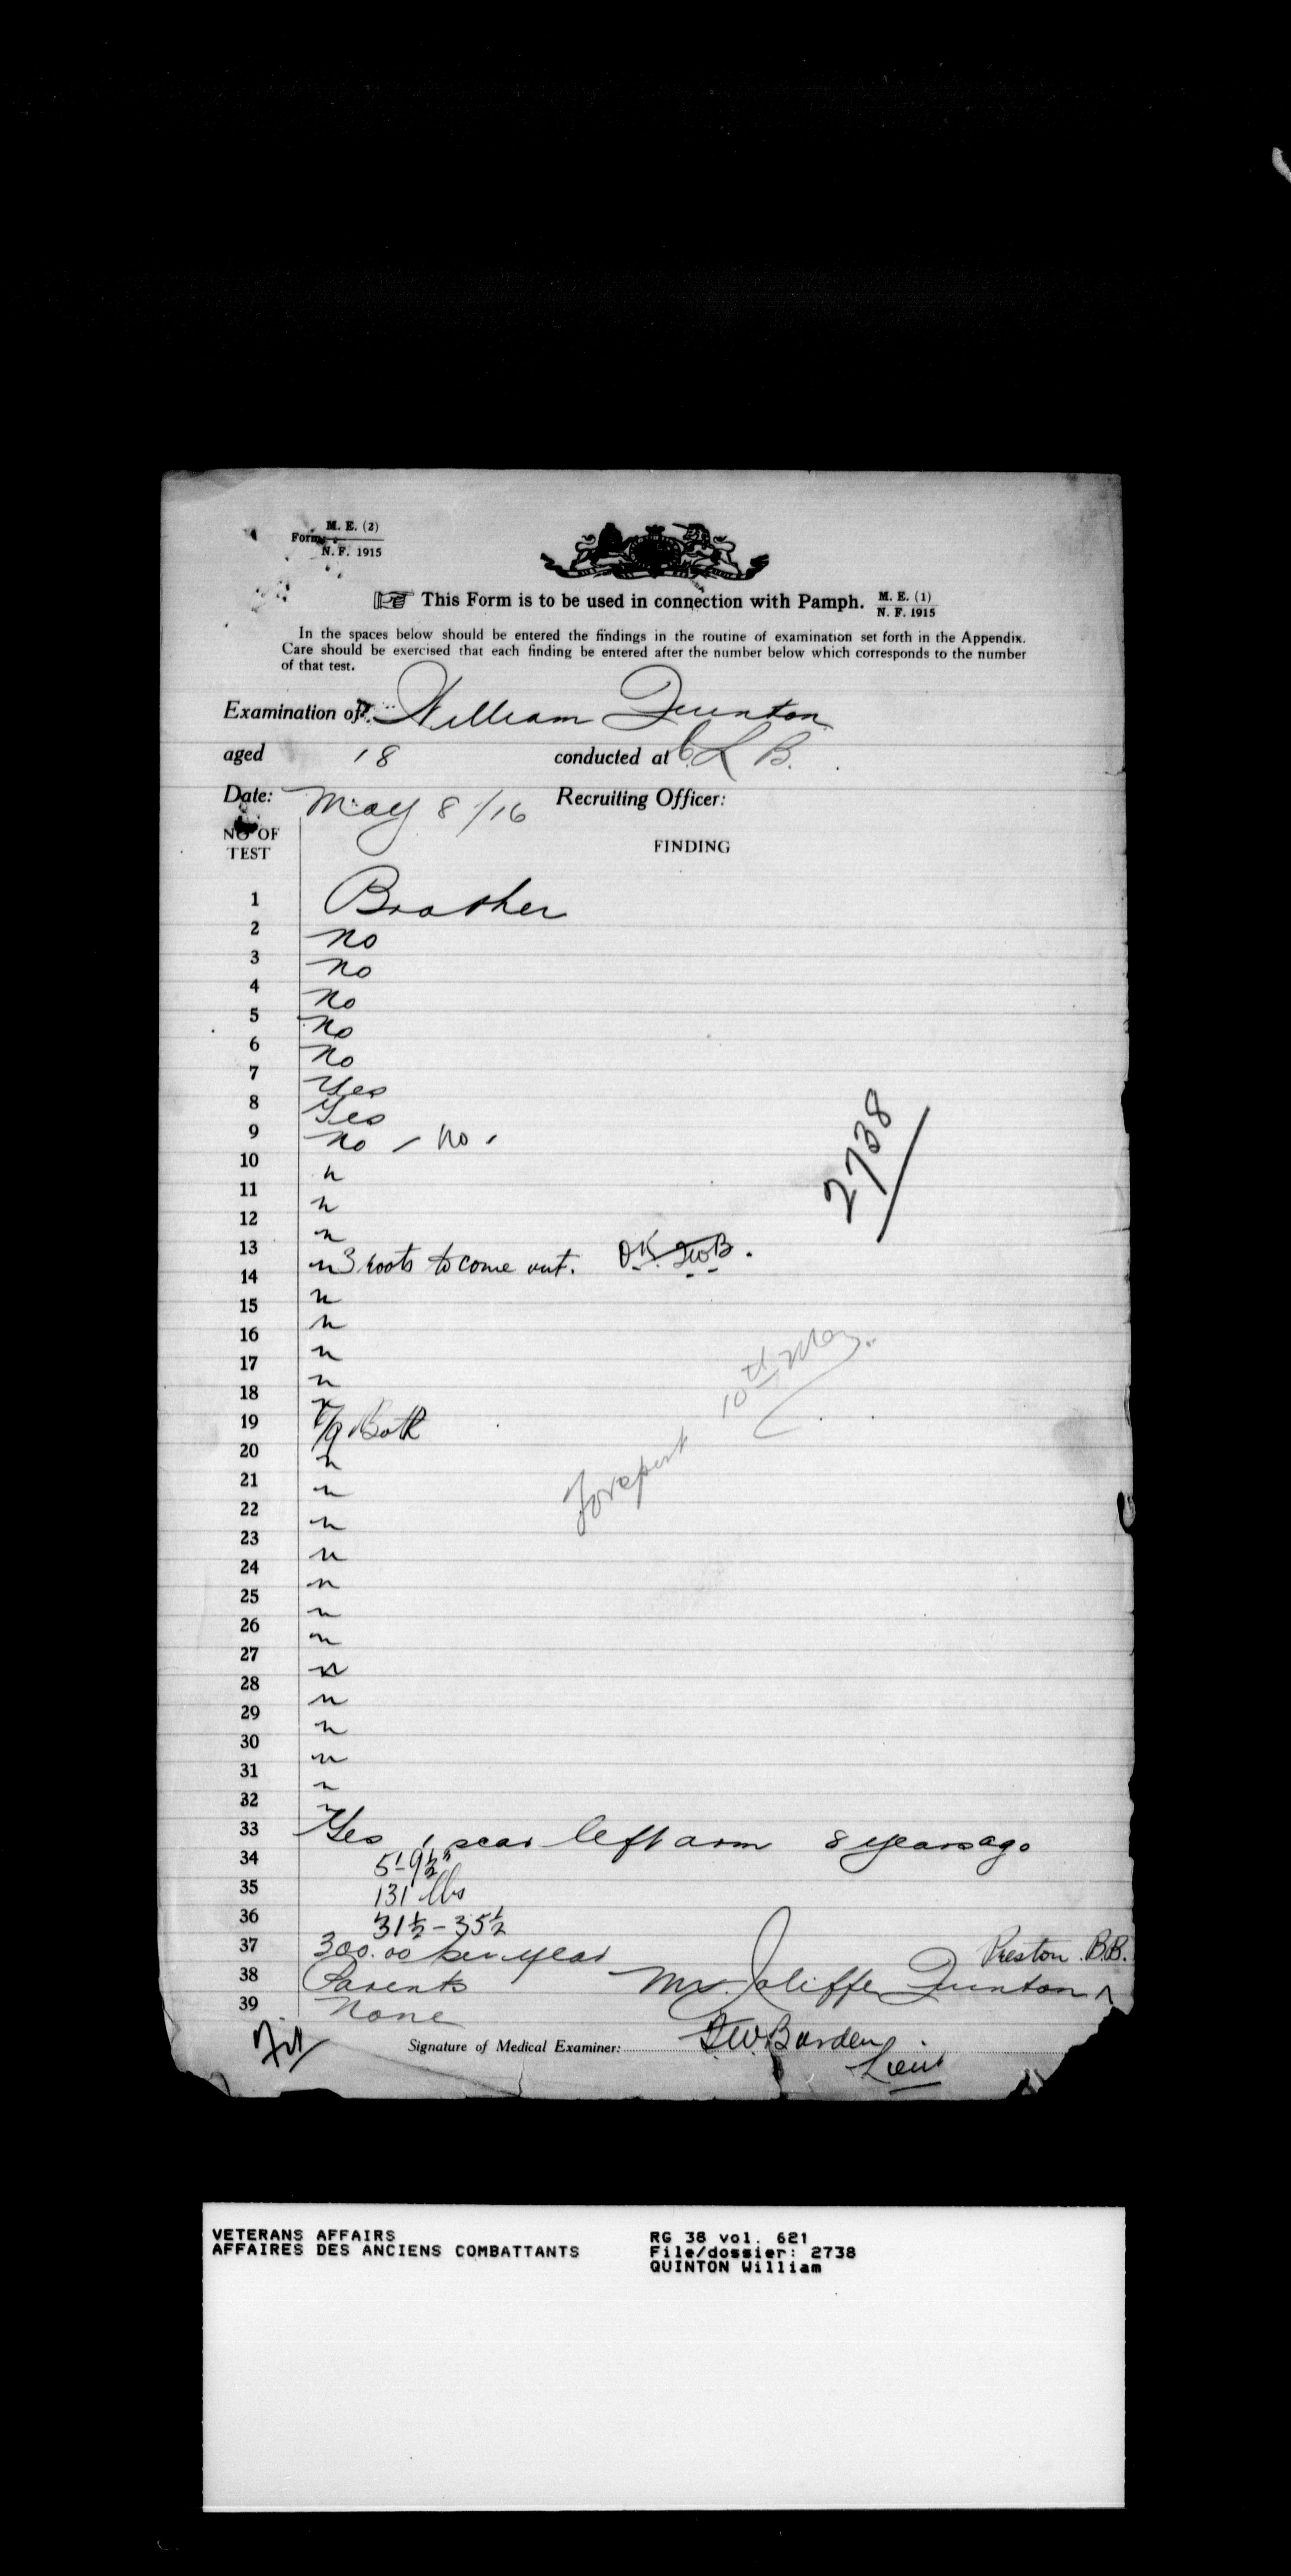 M. E. (2)
Form
N. F. 1915
This Form is to be used in connection with Pamph. M. E. (1)
N. F. 1915
In the spaces below should be entered the findings in the routine of examination set forth in the Appendix.
Care should be exercised that each finding be entered after the number below which corresponds to the number
of that test.
Examination of William Quinton
aged 18 conducted at C L B.
Date: May 8/16 Recruiting Officer:
NO OF
TEST
FINDING
1 Brother
2 no
3 no
4 no
5 no
6 no
7 Yes
8 Yes
9 no / no
10 n
11 n
12 n
13 n 3 roots to come out. OK
14 n
15 n
16 n
17 n
18 n
19 Both
20 n
21 n
22 n
23 n
24 n
25 n
26 n
27 n
28 n
29 n
30 n
31 n
32 n
33 Yes 1 scar left arm 8 years ago
34 5'-9½"
35 131 lbs
36 31½ - 35½
37 300.00 per year Preston B.B.
38 Parents Mr. Joliffe Quinton
39 None
2738
10th May.
Fit
Signature of Medical Examiner: Burden
Lieut
VETERANS AFFAIRS
AFFAIRES DES ANCIENS COMBATTANTS
RG 38 vol. 621
File/dossier: 2738
QUINTON William